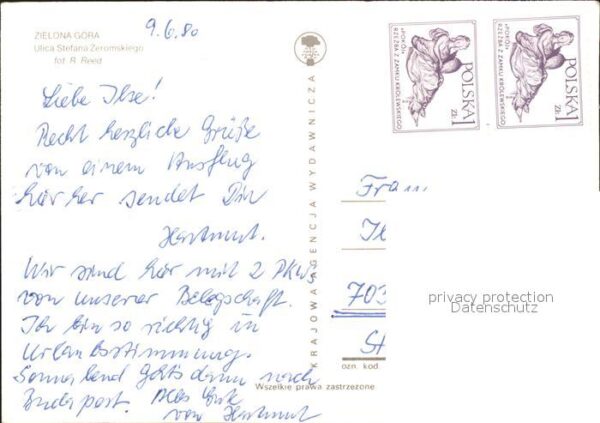 ZIELONA GÓRA
Ulica Stefana Żeromskiego
fot. R. Reed
9.6.80
Liebe Ilse!
Recht herzliche Grüße
von einem Ausflug
hierher sendet Dir
Hartmut.
Wir sind hier mit 2 PKWs
von unserer Belegschaft.
Ich bin so richtig in
Urlaubsstimmung.
Sonnabend geht's dann nach
Budapest. Alles Gute
von Hartmut
KRAJOWA AGENCJA WYDAWNICZA
Wszelkie prawa zastrzeżone
«POKÓJ»
RZEŹBA Z ZAMKU KRÓLEWSKIEGO
POLSKA 1 ZŁ
«POKÓJ»
RZEŹBA Z ZAMKU KRÓLEWSKIEGO
POLSKA 1 ZŁ
703
ozn. kod
privacy protection
Datenschutz